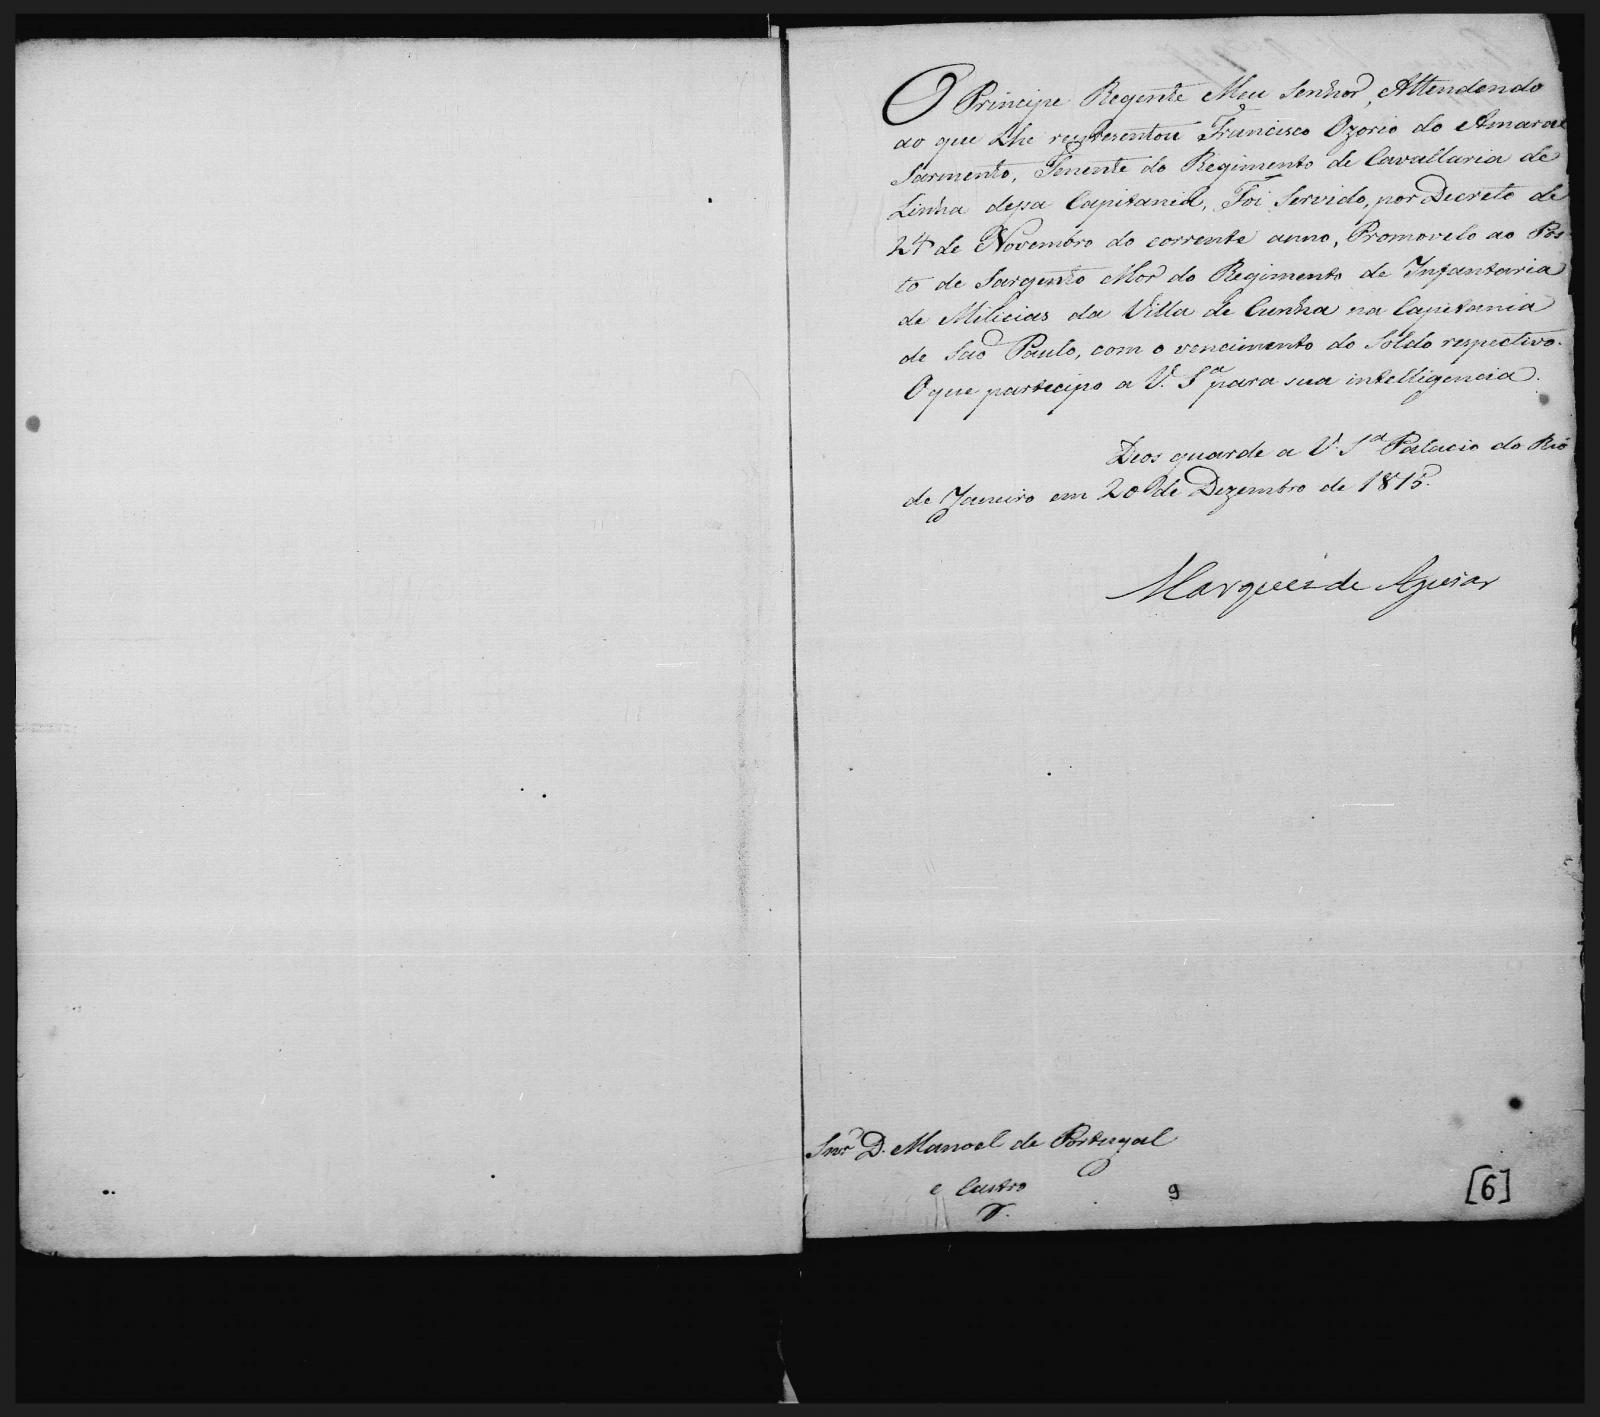 O Principe Regente Meu Senhor, Attendendo
ao que Lhe representou Francisco Ozorio do Amaral
Sarmento, Tenente do Regimento de Cavallaria de
Linha dessa Capitania, Foi Servido, por Decreto de
24 de Novembro do corrente anno, Promovelo ao Pos-
to de Sargento Mor do Regimento de Infantaria
de Milicias da Villa de Cunha na Capitania
de São Paulo, com o vencimento do Soldo respectivo.
O que participo a V. Sª para sua intelligencia.
Deos guarde a V. Sª Palacio do Rio
de Janeiro em 20 de Dezembro de 1815.
Marquez de Aguiar
Snr. D. Manoel de Portugal
e Castro
9
[6]